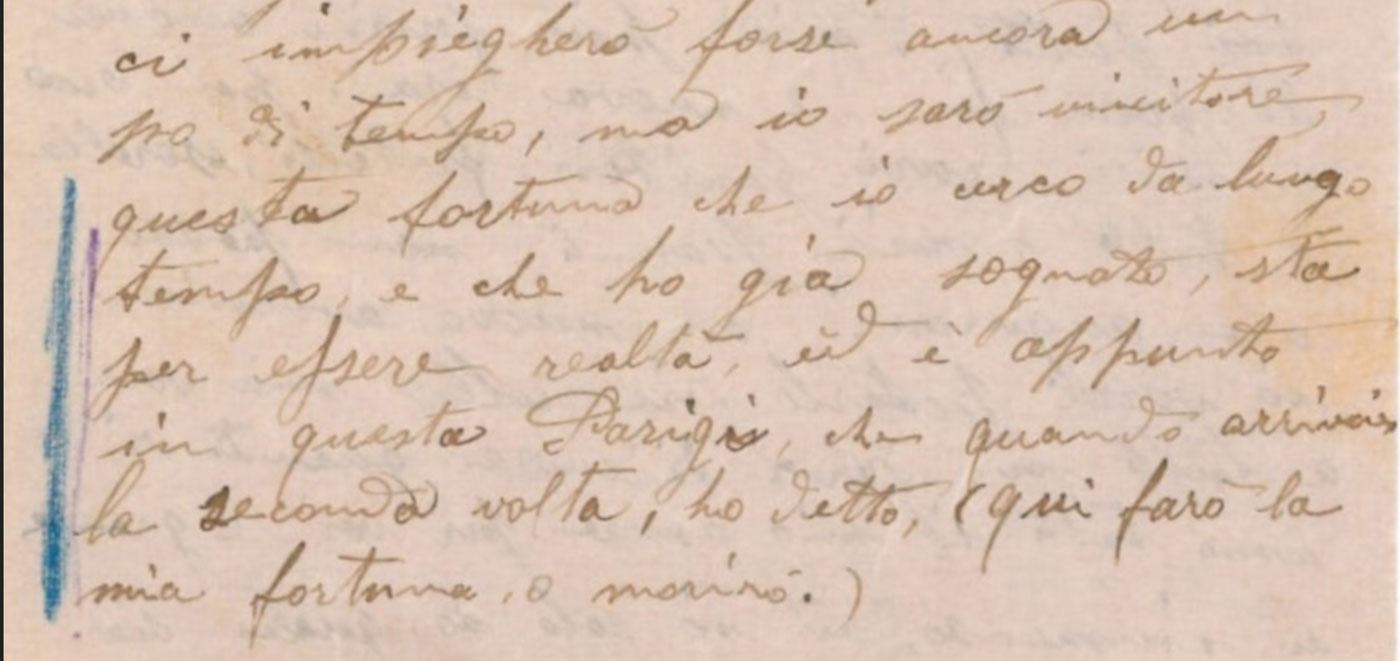 ci impiegherò forse ancora un
po di tempo, ma io sarò vincitore
questa fortuna che io cerco da lungo
tempo, e che ho già sognato, sta
per essere realtà, ed è appunto
in questa Parigi, che quando arrivai
la seconda volta, ho detto, (qui farò la
mia fortuna, o morirò.)